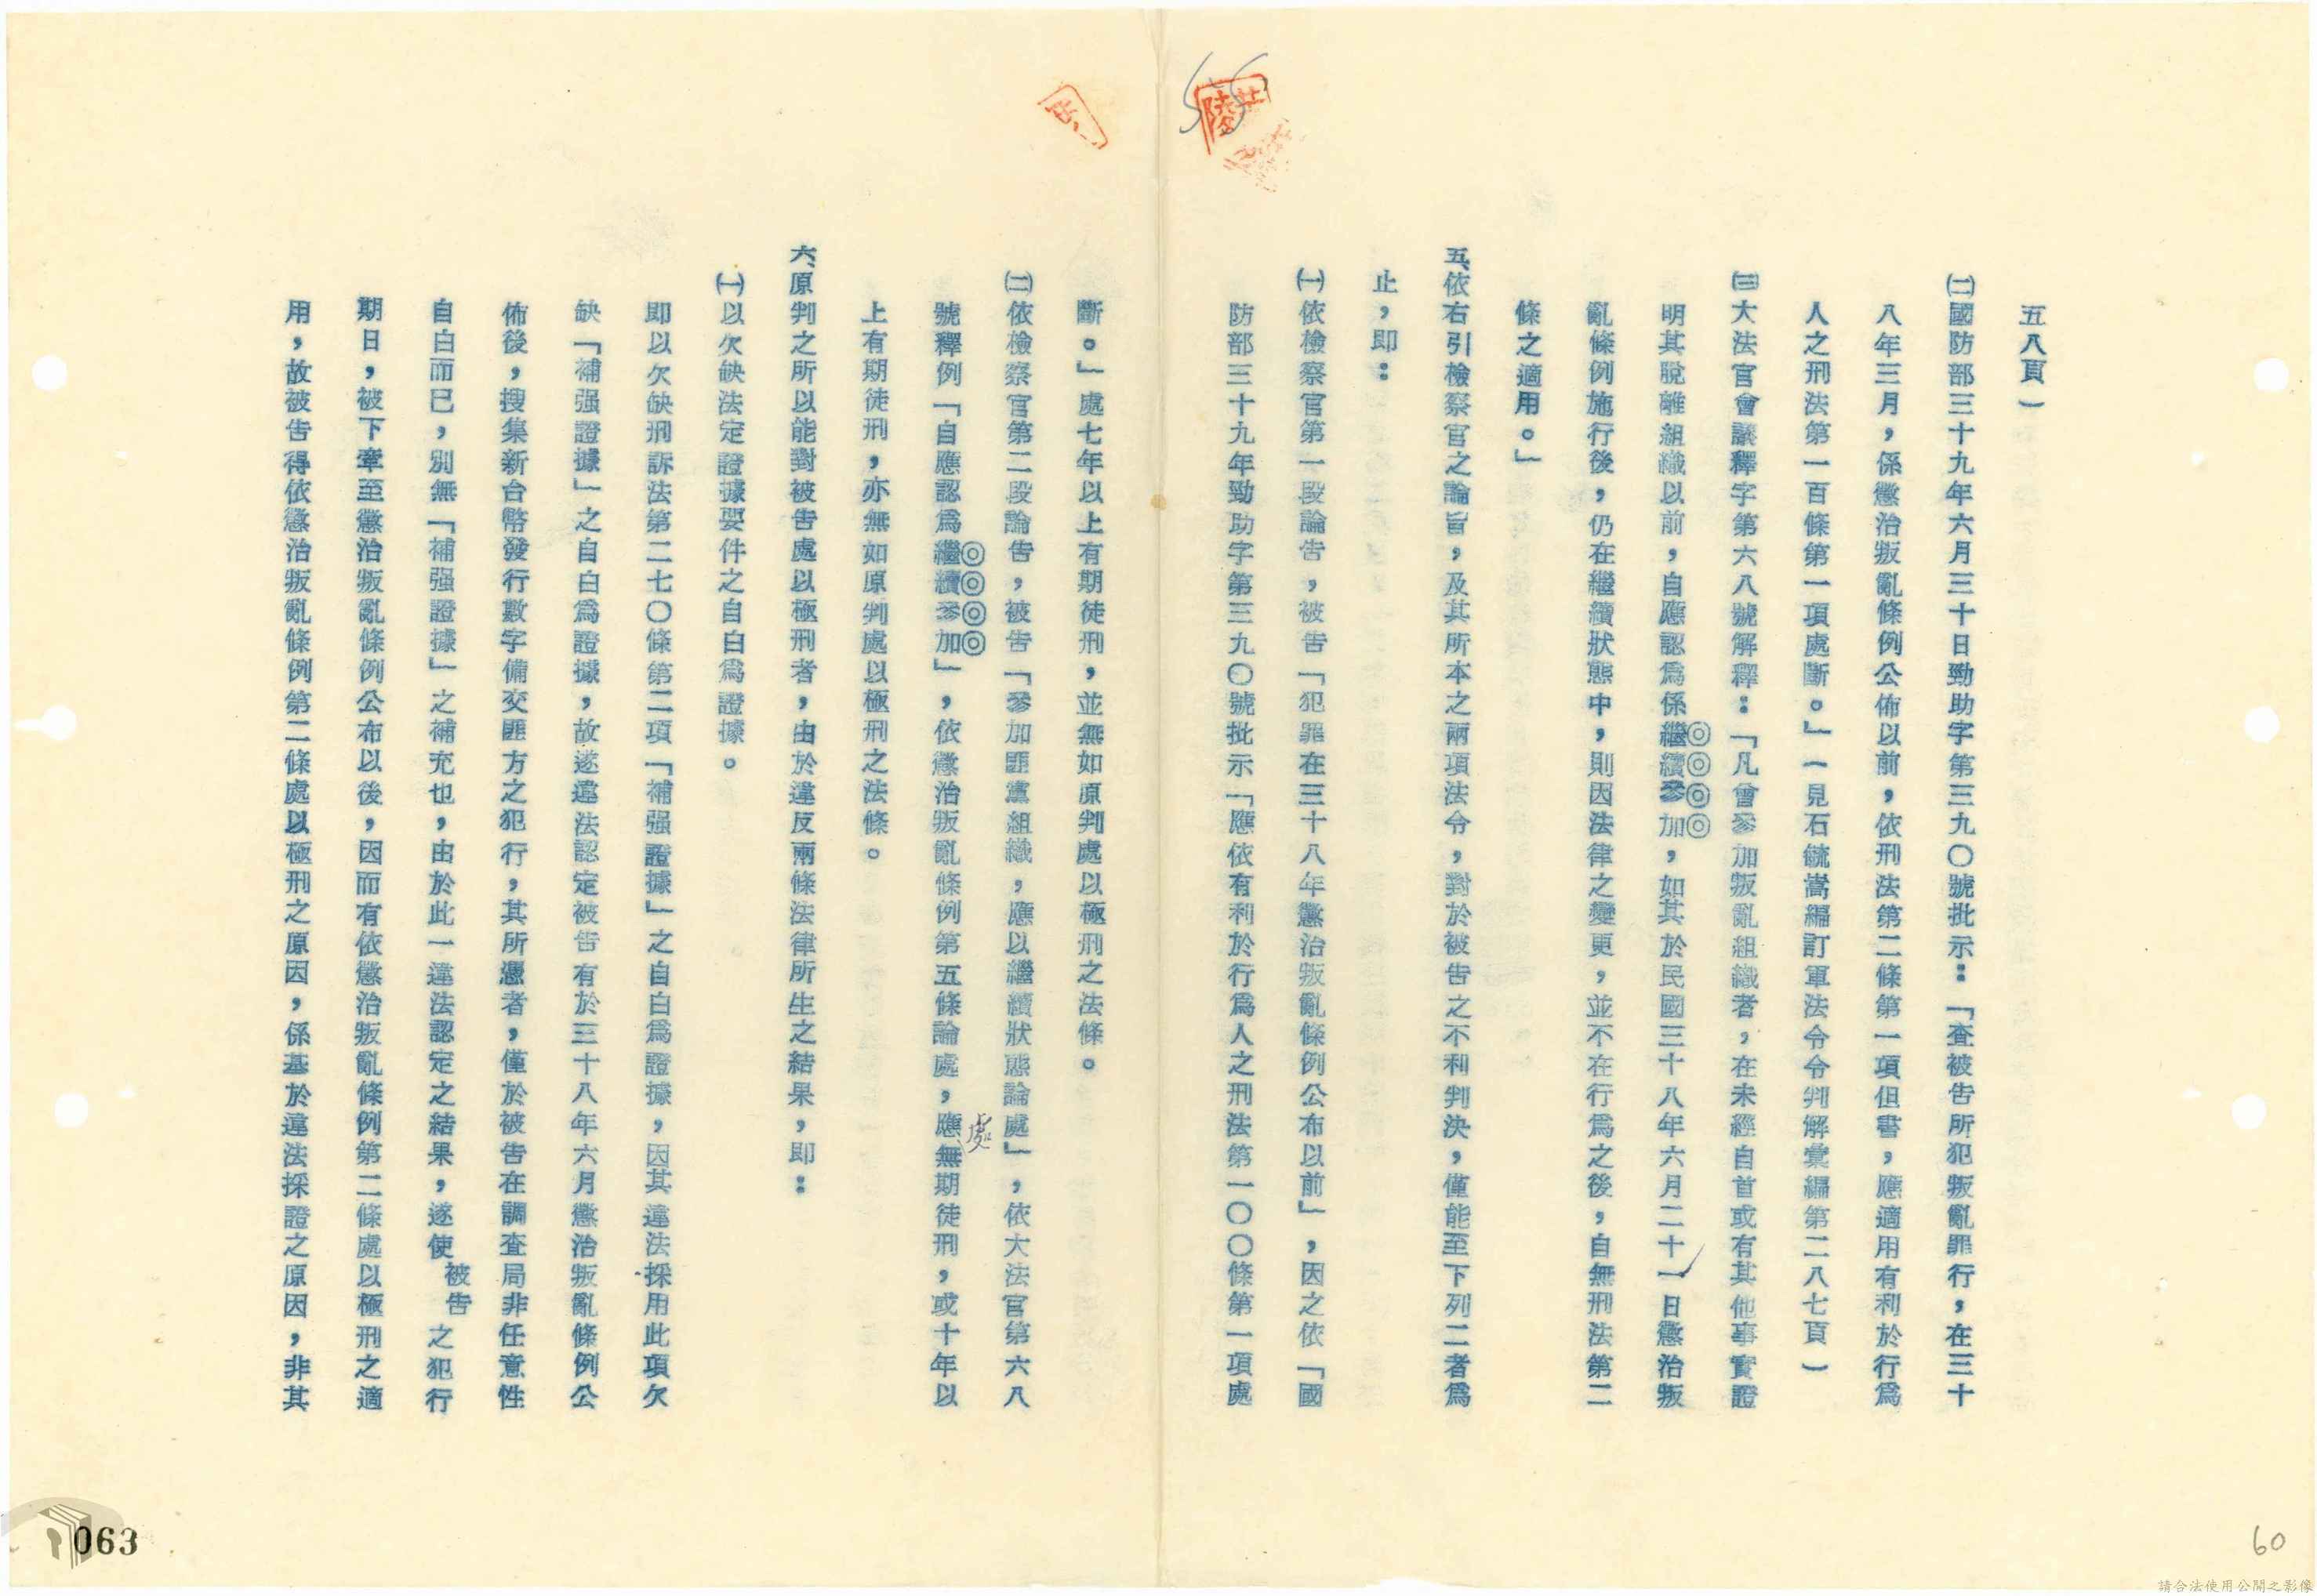 五八頁）
㈡國防部三十九年六月三十日勁助字第三九〇號批示：「查被告所犯叛亂罪行，在三十
八年三月，係懲治叛亂條例公佈以前，依刑法第二條第一項但書，應適用有利於行為
人之刑法第一百條第一項處斷。」一見石毓嵩編訂軍法令令判解彙編第二八七頁）
㈢大法官會議釋字第六八號解釋：「凡曾參加叛亂組織者，在未經自首或有其他事實證
明其脫離組織以前，自應認為係繼續參加，如其於民國三十八年六月二十一日懲治叛
◎◎◎◎
亂條例施行後，仍在繼續狀態中，則因法律之變更，並不在行為之後，自無刑法第二
條之適用。」
五、依右引檢察官之論旨，及其所本之兩項法令，對於被告之不利判決，僅能至下列二者為
止，即：
㈠依檢察官第一段論告，被告「犯罪在三十八年懲治叛亂條例公布以前」，因之依「國
防部三十九年勁助字第三九〇號批示「應依有利於行為人之刑法第一〇〇條第一項處
斷。」處七年以上有期徒刑，並無如原判處以極刑之法條。
㈡依檢察官第二段論告，被告「參加匪黨組織，應以繼續狀態論處」，依大法官第六八
號釋例「自應認為繼續參加」，依懲治叛亂條例第五條論處，應處無期徒刑，或十年以
◎◎◎◎
上有期徒刑，亦無如原判處以極刑之法條。
六、原判之所以能對被告處以極刑者，由於違反兩條法律所生之結果，即：
㈠以欠缺法定證據要件之自白為證據。
即以欠缺刑訴法第二七〇條第二項「補强證據」之自白為證據，因其違法採用此項欠
缺「補强證據」之自白為證據，故遂違法認定被告有於三十八年六月懲治叛亂條例公
佈後，搜集新台幣發行數字備交匪方之犯行，其所憑者，僅於被告在調查局非任意性
自白而已，別無「補强證據」之補充也，由於此一違法認定之結果，遂使被告之犯行
期日，被下牽至懲治叛亂條例公布以後，因而有依懲治叛亂條例第二條處以極刑之適
用，故被告得依懲治叛亂條例第二條處以極刑之原因，係基於違法採證之原因，非其
55
063
60
請合法使用公開之影像